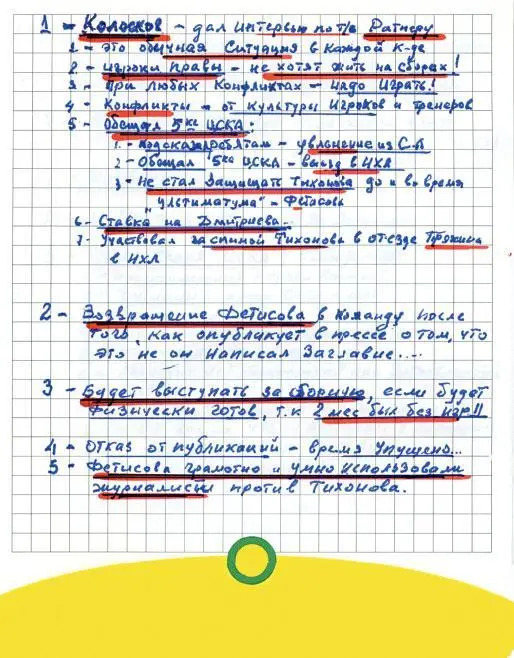 1 - Колосков - дал интервью по т/в Ратнеру
1 - это обычная ситуация в каждой к-де
2 - игроки правы - не хотят жить на сборах!
3 - При любых Конфликтах - надо играть!
4 - Конфликты - от культуры игроков и тренеров
5 - Обещал 5ке ЦСКА:
1 - подсказ. ребятам - увльнение из С.А
2 - Обещал 5ке ЦСКА - выезд в НХЛ
3 - Не стал защищать Тихонова до и во время
"ультиматума" - Фетисова
6 - Ставка на Дмитриева..
7 - Участвовал за спиной Тихонова в отъезде Пряхина
в НХЛ
2 - Возвращение Фетисова в команду после
того, как опубликует в прессе о том, что
это не он написал Заглавие....
3 - Будет выступать за сборную, если будет
физически готов, т.к 2 мес был без игр!!
4 - Отказ от публикаций - время упущено...
5 - Фетисова грамотно и умно использовали
журналисты против Тихонова.